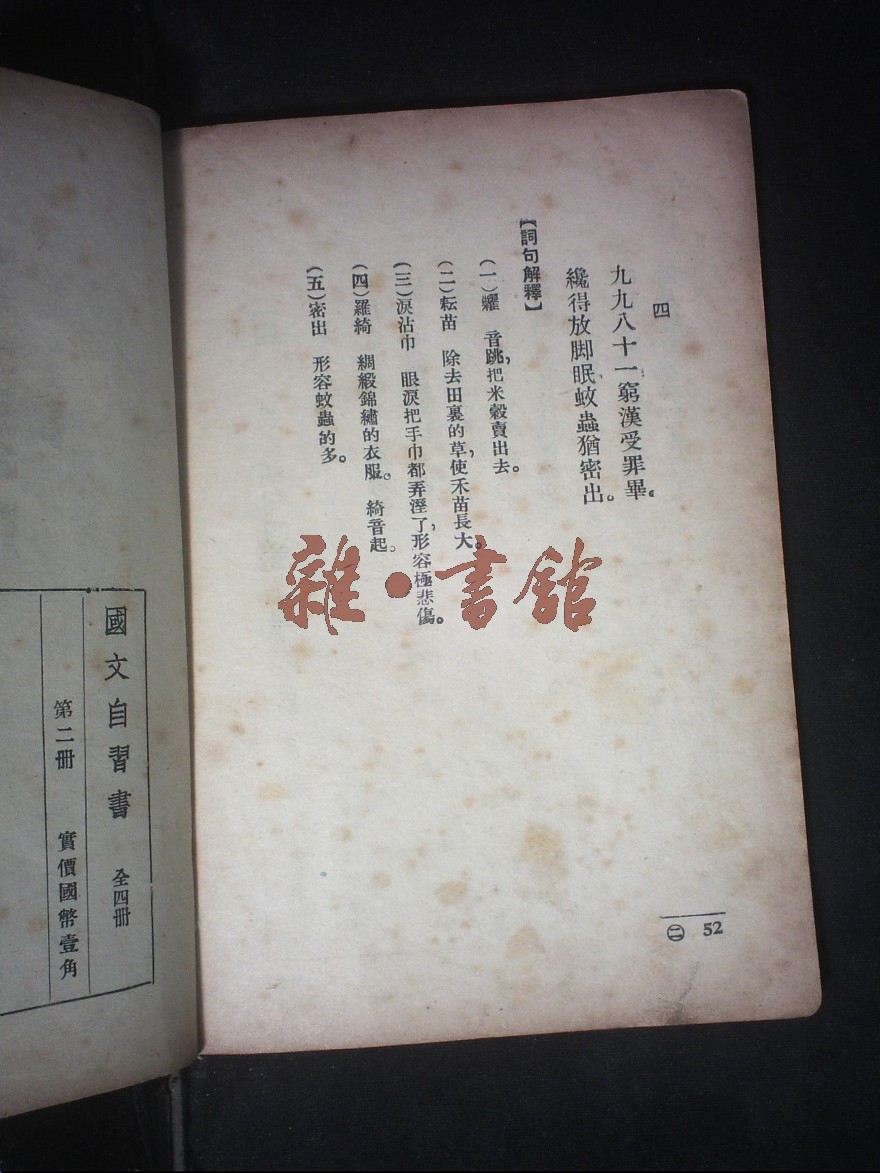 四
九九八十一窮漢受罪畢。
纔得放脚眠蚊蟲猶密出。
【詞句解釋】
(一)糶　音跳，把米穀賣出去。
(二)耘苗　除去田裏的草，使禾苗長大。
(三)淚沾巾　眼淚把手巾都弄溼了，形容極悲傷。
(四)羅綺　綢緞錦繡的衣服。　綺音起。
(五)密出　形容蚊蟲的多。
㊁ 52
國文自習書　全四冊
第二冊　實價國幣壹角
雜·書館